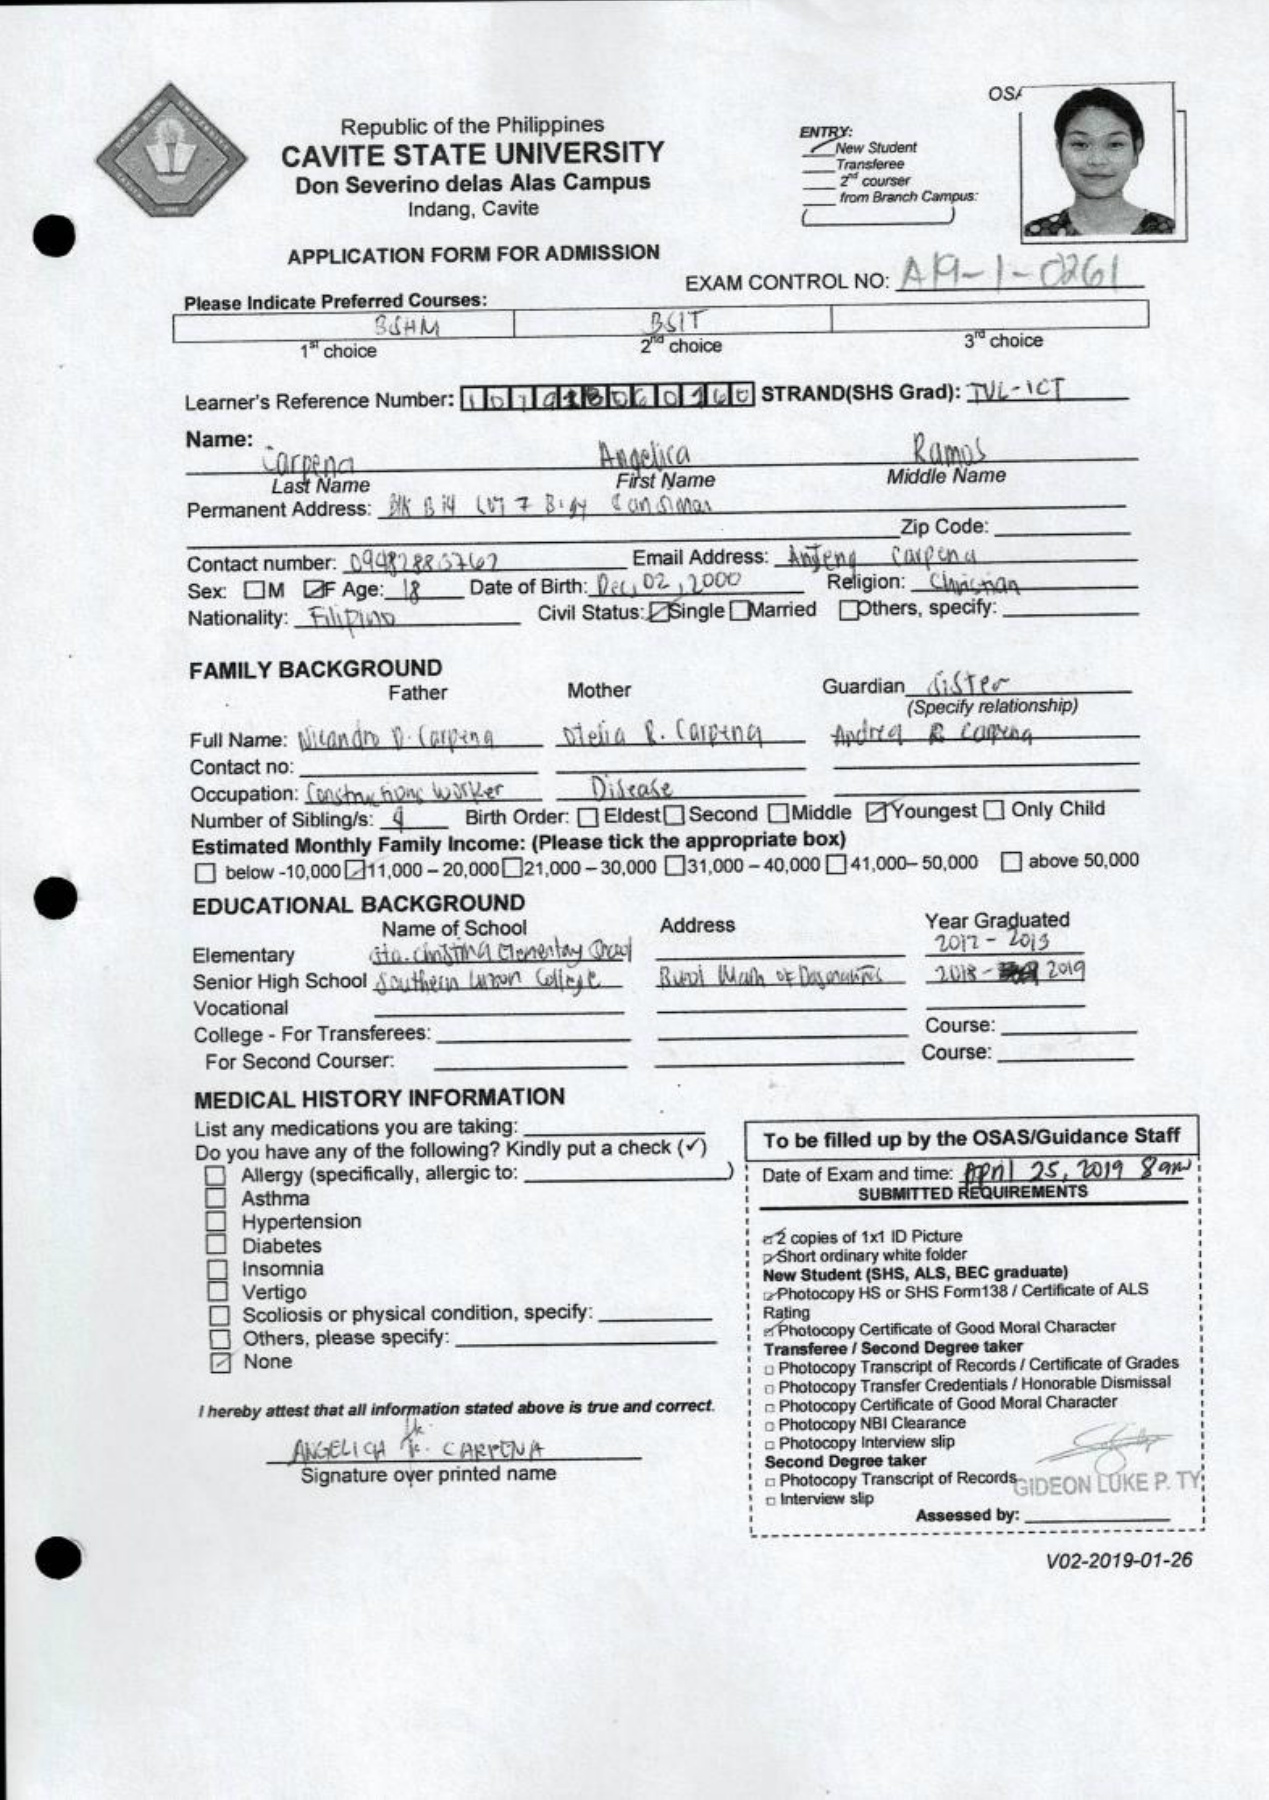 OSA
Republic of the Philippines
CAVITE STATE UNIVERSITY
Don Severino delas Alas Campus
Indang, Cavite
ENTRY:
New Student
Transferee
2nd courser
from Branch Campus:
APPLICATION FORM FOR ADMISSION
EXAM CONTROL NO: A19-1-0261
Please Indicate Preferred Courses:
BSHM BSIT
1st choice 2nd choice 3rd choice
Learner's Reference Number: STRAND(SHS Grad): TVL-ICT
Name: Carpena Angelica Ramos
Last Name First Name Middle Name
Permanent Address: Blk B 14 Lot 7 Brgy
Zip Code:
Contact number: Email Address: Anjeng Carpena
Sex: M F Age: 18 Date of Birth: Dec, 02, 2000 Religion: Christian
Nationality: Filipino Civil Status: Single Married Others, specify:
FAMILY BACKGROUND
Father Mother Guardian Sister
(Specify relationship)
Full Name: Nicandro D. Carpena R. Carpena Andrea R Carpena
Contact no:
Occupation: Constructions Worker Disease
Number of Sibling/s: 4 Birth Order: Eldest Second Middle Youngest Only Child
Estimated Monthly Family Income: (Please tick the appropriate box)
below -10,000 11,000 – 20,000 21,000 – 30,000 31,000 – 40,000 41,000– 50,000 above 50,000
EDUCATIONAL BACKGROUND
Name of School Address Year Graduated
Elementary Sta. Christina Elementary School 2012 - 2013
Senior High School Southern Luzon College 2018 - 2019
Vocational
College - For Transferees: Course:
For Second Courser: Course:
MEDICAL HISTORY INFORMATION
List any medications you are taking:
Do you have any of the following? Kindly put a check (✓)
Allergy (specifically, allergic to: )
Asthma
Hypertension
Diabetes
Insomnia
Vertigo
Scoliosis or physical condition, specify:
Others, please specify:
None
I hereby attest that all information stated above is true and correct.
ANGELICA R. CARPENA
Signature over printed name
To be filled up by the OSAS/Guidance Staff
Date of Exam and time: April 25, 2019 8am
SUBMITTED REQUIREMENTS
2 copies of 1x1 ID Picture
Short ordinary white folder
New Student (SHS, ALS, BEC graduate)
Photocopy HS or SHS Form138 / Certificate of ALS
Rating
Photocopy Certificate of Good Moral Character
Transferee / Second Degree taker
Photocopy Transcript of Records / Certificate of Grades
Photocopy Transfer Credentials / Honorable Dismissal
Photocopy Certificate of Good Moral Character
Photocopy NBI Clearance
Photocopy Interview slip
Second Degree taker
Photocopy Transcript of Records
GIDEON LUKE P. TY
Interview slip
Assessed by:
V02-2019-01-26